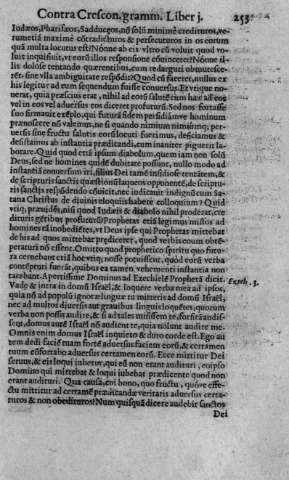 Contra Crescon. gramm. Liber j. 253
Iudæos, Pharisæos, Sadducæos, nō solū minimè credituros, ve-
rumetiā maximè cōtradicturos & persecuturos in os eorum
quā multa locutus est? Nónne ab eis vltro cū voluit quod vo-
luit inquisiuit, vt eorū illos responsione cōuinceret? Nónne il-
lis dolose tentando quærentibus, eum redargui obmutesce-
rēt: sine vlla ambiguitate respōdit? Quod cū faceret, nullus ex
his legitur ad eum sequendum fuisse conuersus. Et vtique no-
uerat, quia præscius erat, nihil ad eorū salutē cum hæc ad eos
vel in eos vel aduersus eos diceret profuturū. Sed nos fortasse
suo firmauit exēplo, qui futurā fidem perfidiámve hominum
prænoscere nō valemus, ne si quando nimium nimiúmq; per-
uersis sine fructu salutis eorū locuti fuerimus, deficiamus &
desistamus ab instantia prædicandi, cum inaniter piguerit la-
borare. Quid quod etiā ipsum diabolum, quem iam non solū
Deus, sed ne homines quidē dubitare possunt, nullo modo ad
instantiā conuersum iri, filius Dei tamē insidiose tentātem, &
de scripturis sanctis quæstionū laqueos opponentē, de scriptu-
ris sanctis respōdendo cōuicit, nec iudicauit indignū cum Sa-
tana Christus de diuinis eloquiis habere colloquium? Quod
vtiq; præuidēs, nisi quod Iudæis & diabolo nihil prodesset, cre
dituris gētibus profuturū? Prophetas etiā legimus missos ad
homines tā inobediētes, vt Deus ipse qui Prophetas mittebat
de his ad quos mittebat prædiceret, quod verbis eoum obtē-
peraturi nō essent. Omitto quod prophetico spiritu quo futu-
ra cernebant etiā hoc vtiq; nosse potuissent, quòd eorū verba
contēpturi fuerāt, quibus ea tamen vehementi instantia non
tacebant. Apertissime Dominus ad Ezechielē Prophetā dicit.
Ezech. 3.
Vade & intra in domū Israel, & loquere verba mea ad ipsos,
quia nō ad populū ignoræ linguæ tu mitteris ad domū Israël,
nec ad multos diuersis aut grauibus linguis loquentes, quorum
verba non possis audire, & si ad tales misissem te, forsitā audis-
sēt, domus autē Israël nō audient te, quia nolunt audire me.
Omnis enim domus Israël inquieto & duro corde est. Ego au
tem dedi faciē tuam fortē aduersus faciem eorū, & certamen
tuum cōfortabo aduersus certamen eorū. Ecce mittitur Dei
seruus, & eis loqui iubetur, qui eū non erant audituri, eo ipso
Domino qui mittebat & loqui iubebat prædicente quod non
erant audituri. Qua causa, cui bono, quo fructu, quóve effe-
ctu mittitur ad certamē prædicandæ veritatis aduersus certa-
turos & non obedituros? Num quisquā dicere audebit sanctos
Dei